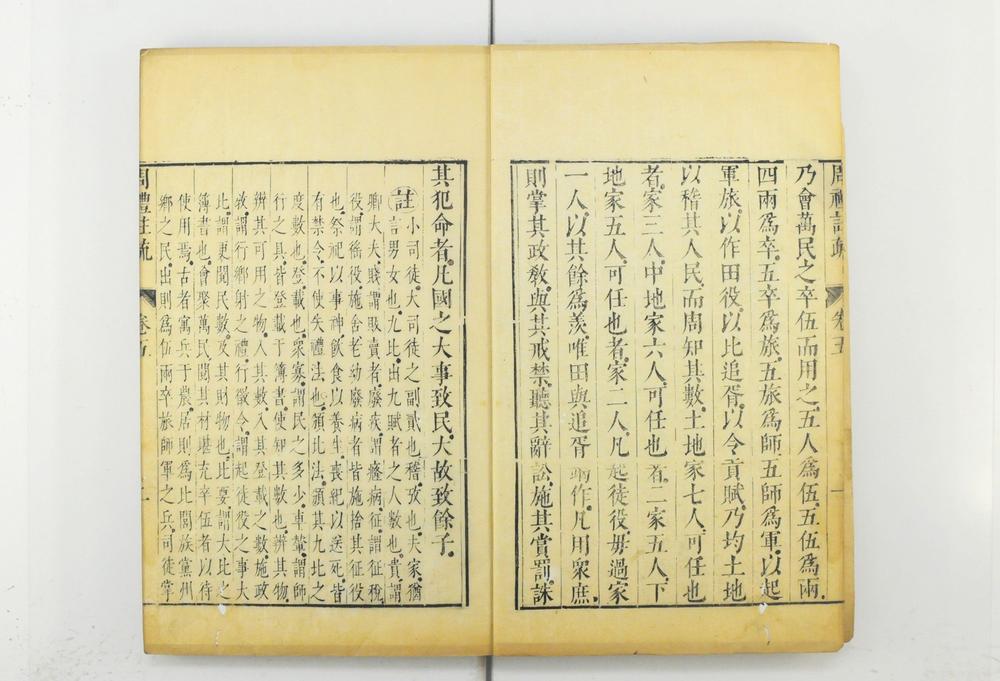 周禮註疏 卷五 一
乃會萬民之卒伍而用之五人爲伍五伍爲兩
四兩爲卒五卒爲旅五旅爲師五師爲軍以起
軍旅以作田役以比追胥以令貢賦乃均土地
以稽其人民而周知其數上地家七人可任也
者家三人中地家六人可任也者二家五人下
地家五人可任也者家二人凡起徒役毋過家
一人以其餘爲羡唯田與追胥竭作凡用衆庶
則掌其政教與其戒禁聽其辭訟施其賞罰誅
其犯命者凡國之大事致民大故致餘子
註 小司徒大司徒之副貳也稽攷也夫家猶
言男女也九比出九賦者之人數也貴謂
卿大夫賤謂販賣者廢疾謂癃病征謂征稅
役謂徭役施舍老幼廢病者皆施捨其征役
也祭祀以事神飲食以養生喪紀以送死皆
有禁令不使失禮法也頒比法頒其九比之
度數也登載也衆寡謂民之多少車輦謂師
行之具皆登載于簿書使知其數也辨其物
辨其可用之物入其數入其登載之數施政
教謂行鄉射之禮行徵令謂起徒役之事大
比謂更閱民數及其財物也比要謂大比之
簿書也會聚萬民閱其材堪充卒伍者以待
使用焉古者寓兵于農居則爲比閭族黨州
鄉之民出則爲伍兩卒旅師軍之兵司徒掌
周禮註疏 卷五